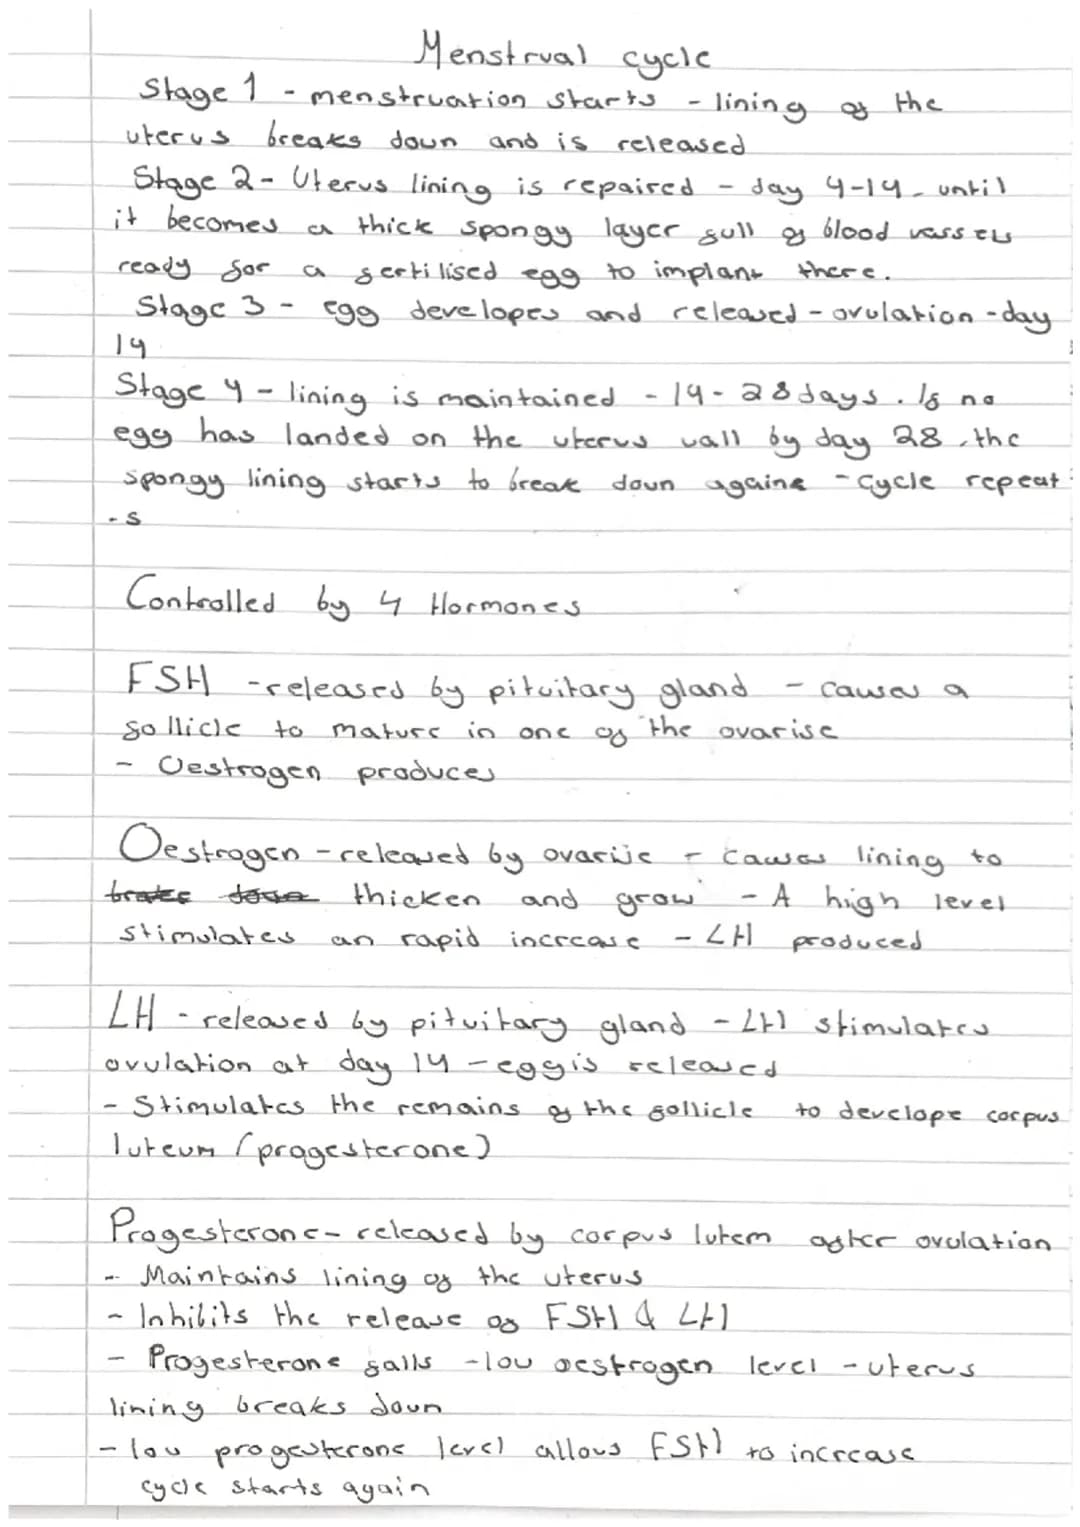 Menstrual cycle
Stage 1 - menstruation starts - lining of the
uterus breaks down and is released
Stage 2 - Uterus lining is repaired - day 4-14 - until
it becomes a thick spongy layer full of blood vassels
ready for a fertilised egg to implant there.
Stage 3 - egg developes and released - ovulation - day
14
Stage 4 - lining is maintained - 14 - 28 days. If no
egg has landed on the uterus wall by day 28, the
spongy lining starts to break down againe - cycle repeat
- s
Controlled by 4 Hormones
FSH - released by pituitary gland - causes a
follicle to mature in one of the ovarise
- Oestrogen produces
Oestrogen - released by ovarise - causes lining to
brake down thicken and grow - A high level
stimulates an rapid increase - LH produced
LH - released by pituitary gland - LH stimulates
ovulation at day 14 - egg is released
- Stimulates the remains of the follicle to develope corpus
luteum (progesterone)
Progesterone - released by corpus lutem after ovulation
- Maintains lining of the uterus
- Inhibits the release of FSH & LH
- Progesterone falls - low oestrogen level - uterus
lining breaks down
- low progesterone level allows FSH to increase
cycle starts again